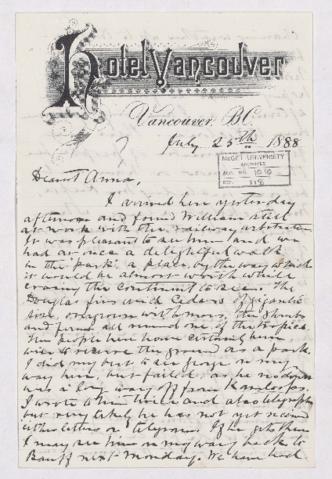 Hotel Vancouver
Vancouver, B.C.
July 25th 1888
McGILL UNIVERSITY
ARCHIVES
ACC. NO.
REF.
Dearest Anna,
I arrived here yesterday
afternoon and found William still
at work with the railway arbitration
It was pleasant to see him and we
had at once a delightful walk
in the "park", a place, by the way, which
it would be almost worth while
crossing the continent to see. The
Douglas firs and Cedars of gigantic
size, overgrown with moss, the shrubs
and ferns all remind one of the tropics.
The people here have certainly been
wise to reserve the ground as a park.
I did my best to see on my
way here but failed as he is down
a long way off from Kamloops.
I wrote to him twice and also telegraphed
but very likely he has not yet received
either letters or telegrams. If he gets them
I may see him on my way back to
Banff next Monday. We have had